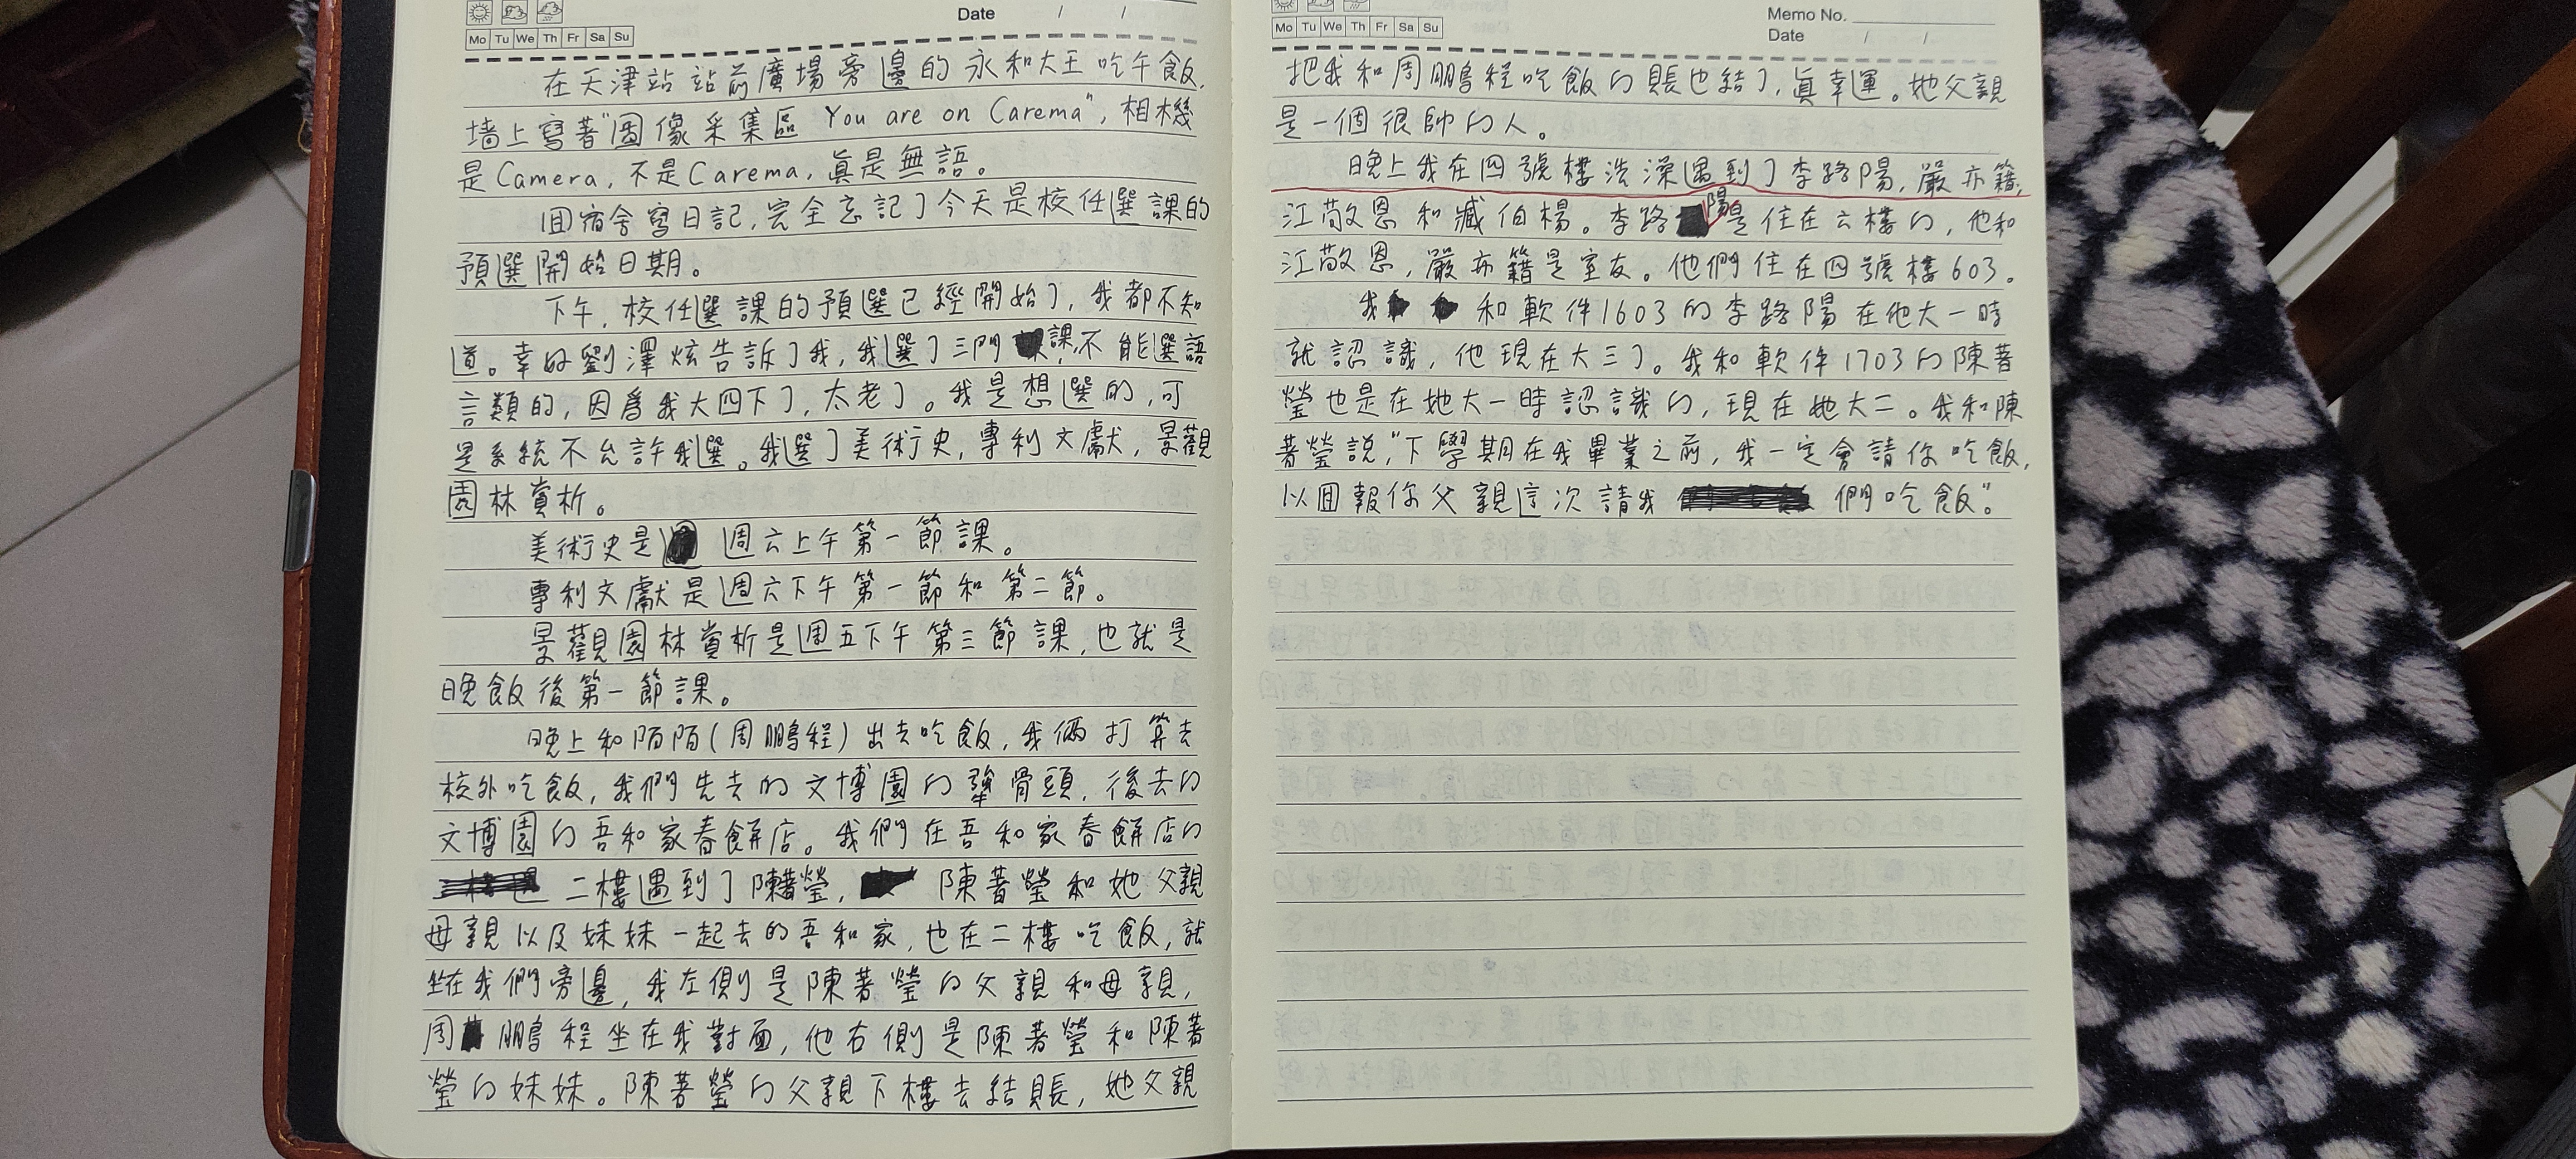 Date / /
Mo Tu We Th Fr Sa Su
在天津站站前廣場旁邊的永和大王吃午飯,
墙上寫著"圖像采集區 You are on Carema", 相機
是Camera, 不是Carema, 眞是無語。
回宿舍寫日記, 完全忘記了今天是校任選課的
預選開始日期。
下午, 校任選課的預選已經開始了, 我都不知
道。幸好劉澤炫告訴了我, 我選了三門課, 不能選語
言類的, 因爲我大四下了, 太老了。我是想選的, 可
是系統不允許我選。我選了美術史, 專利文獻, 景觀
園林賞析。
美術史是 週六上午第一節課。
專利文獻是週六下午第一節和第二節。
景觀園林賞析是週五下午第三節課, 也就是
晚飯後第一節課。
晚上和陌陌(周鵬程)出去吃飯, 我倆打算去
校外吃飯, 我們先去的文博園的犟骨頭, 後去的
文博園的吾和家春餅店。我們在吾和家春餅店的
二樓遇到了陳著瑩, 陳著瑩和她父親
母親以及妹妹一起去的吾和家, 也在二樓吃飯, 就
坐在我們旁邊, 我左側是陳著瑩的父親和母親,
周鵬程坐在我對面, 他右側是陳著瑩和陳著
瑩的妹妹。陳著瑩的父親下樓去結賬, 她父親
Memo No.
Date / /
Mo Tu We Th Fr Sa Su
把我和周鵬程吃飯的賬也結了, 眞幸運。她父親
是一個很帥的人。
晚上我在四號樓洗澡遇到了李路陽, 嚴亦籍,
江敬恩和臧伯楊。李路陽是住在六樓的, 他和
江敬恩, 嚴亦籍是室友。他們住在四號樓603。
我和軟件1603的李路陽在他大一時
就認識, 他現在大三了。我和軟件1703的陳著
瑩也是在她大一時認識的, 現在她大二。我和陳
著瑩說, "下學期在我畢業之前, 我一定會請你吃飯,
以回報你父親這次請我們吃飯"。